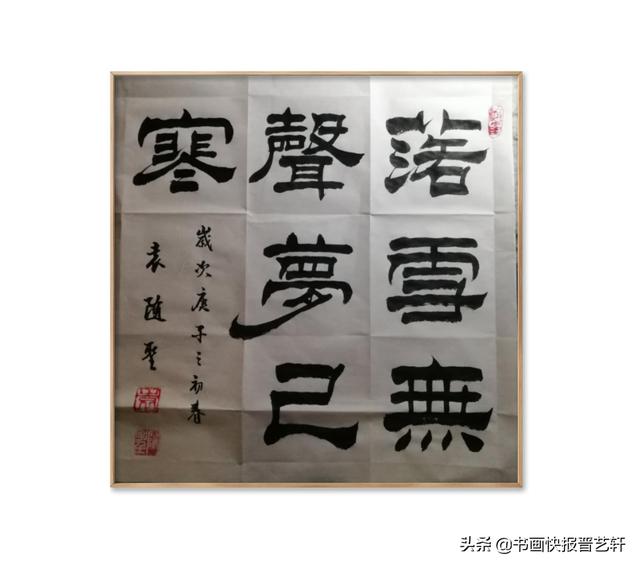 落雪無
聲夢已
寒
歲次庚子之初春
袁随聖
头条 @书画快报晋艺轩